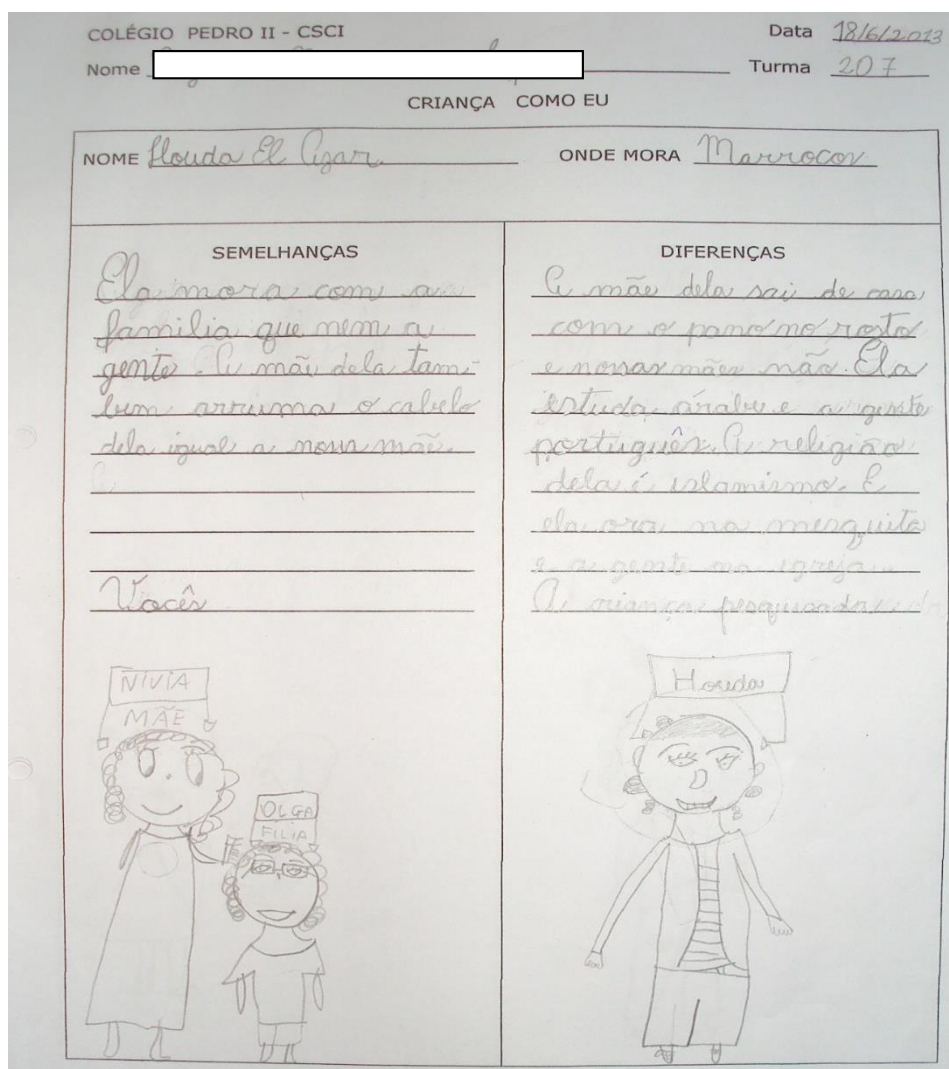 COLÉGIO PEDRO II - CSCI
Data 18/6/2013
Nome
Turma 207
CRIANÇA COMO EU
NOME Houda El Azar.
ONDE MORA Marrocos
SEMELHANÇAS
Ela mora com a
família que nem a
gente. A mãe dela tam-
bem arruma o cabelo
dela igual a nossa mãe.
A
Vocês
DIFERENÇAS
A mãe dela sai de casa
com o pano no rosto
e nossas mães não. Ela
estuda árabe e a gente
português. A religião
dela é islamismo. E
ela ora na mesquita
e a gente na igreja.
A criança pesquisada
NIVIA
MÃE
OLGA
FILIA
Houda